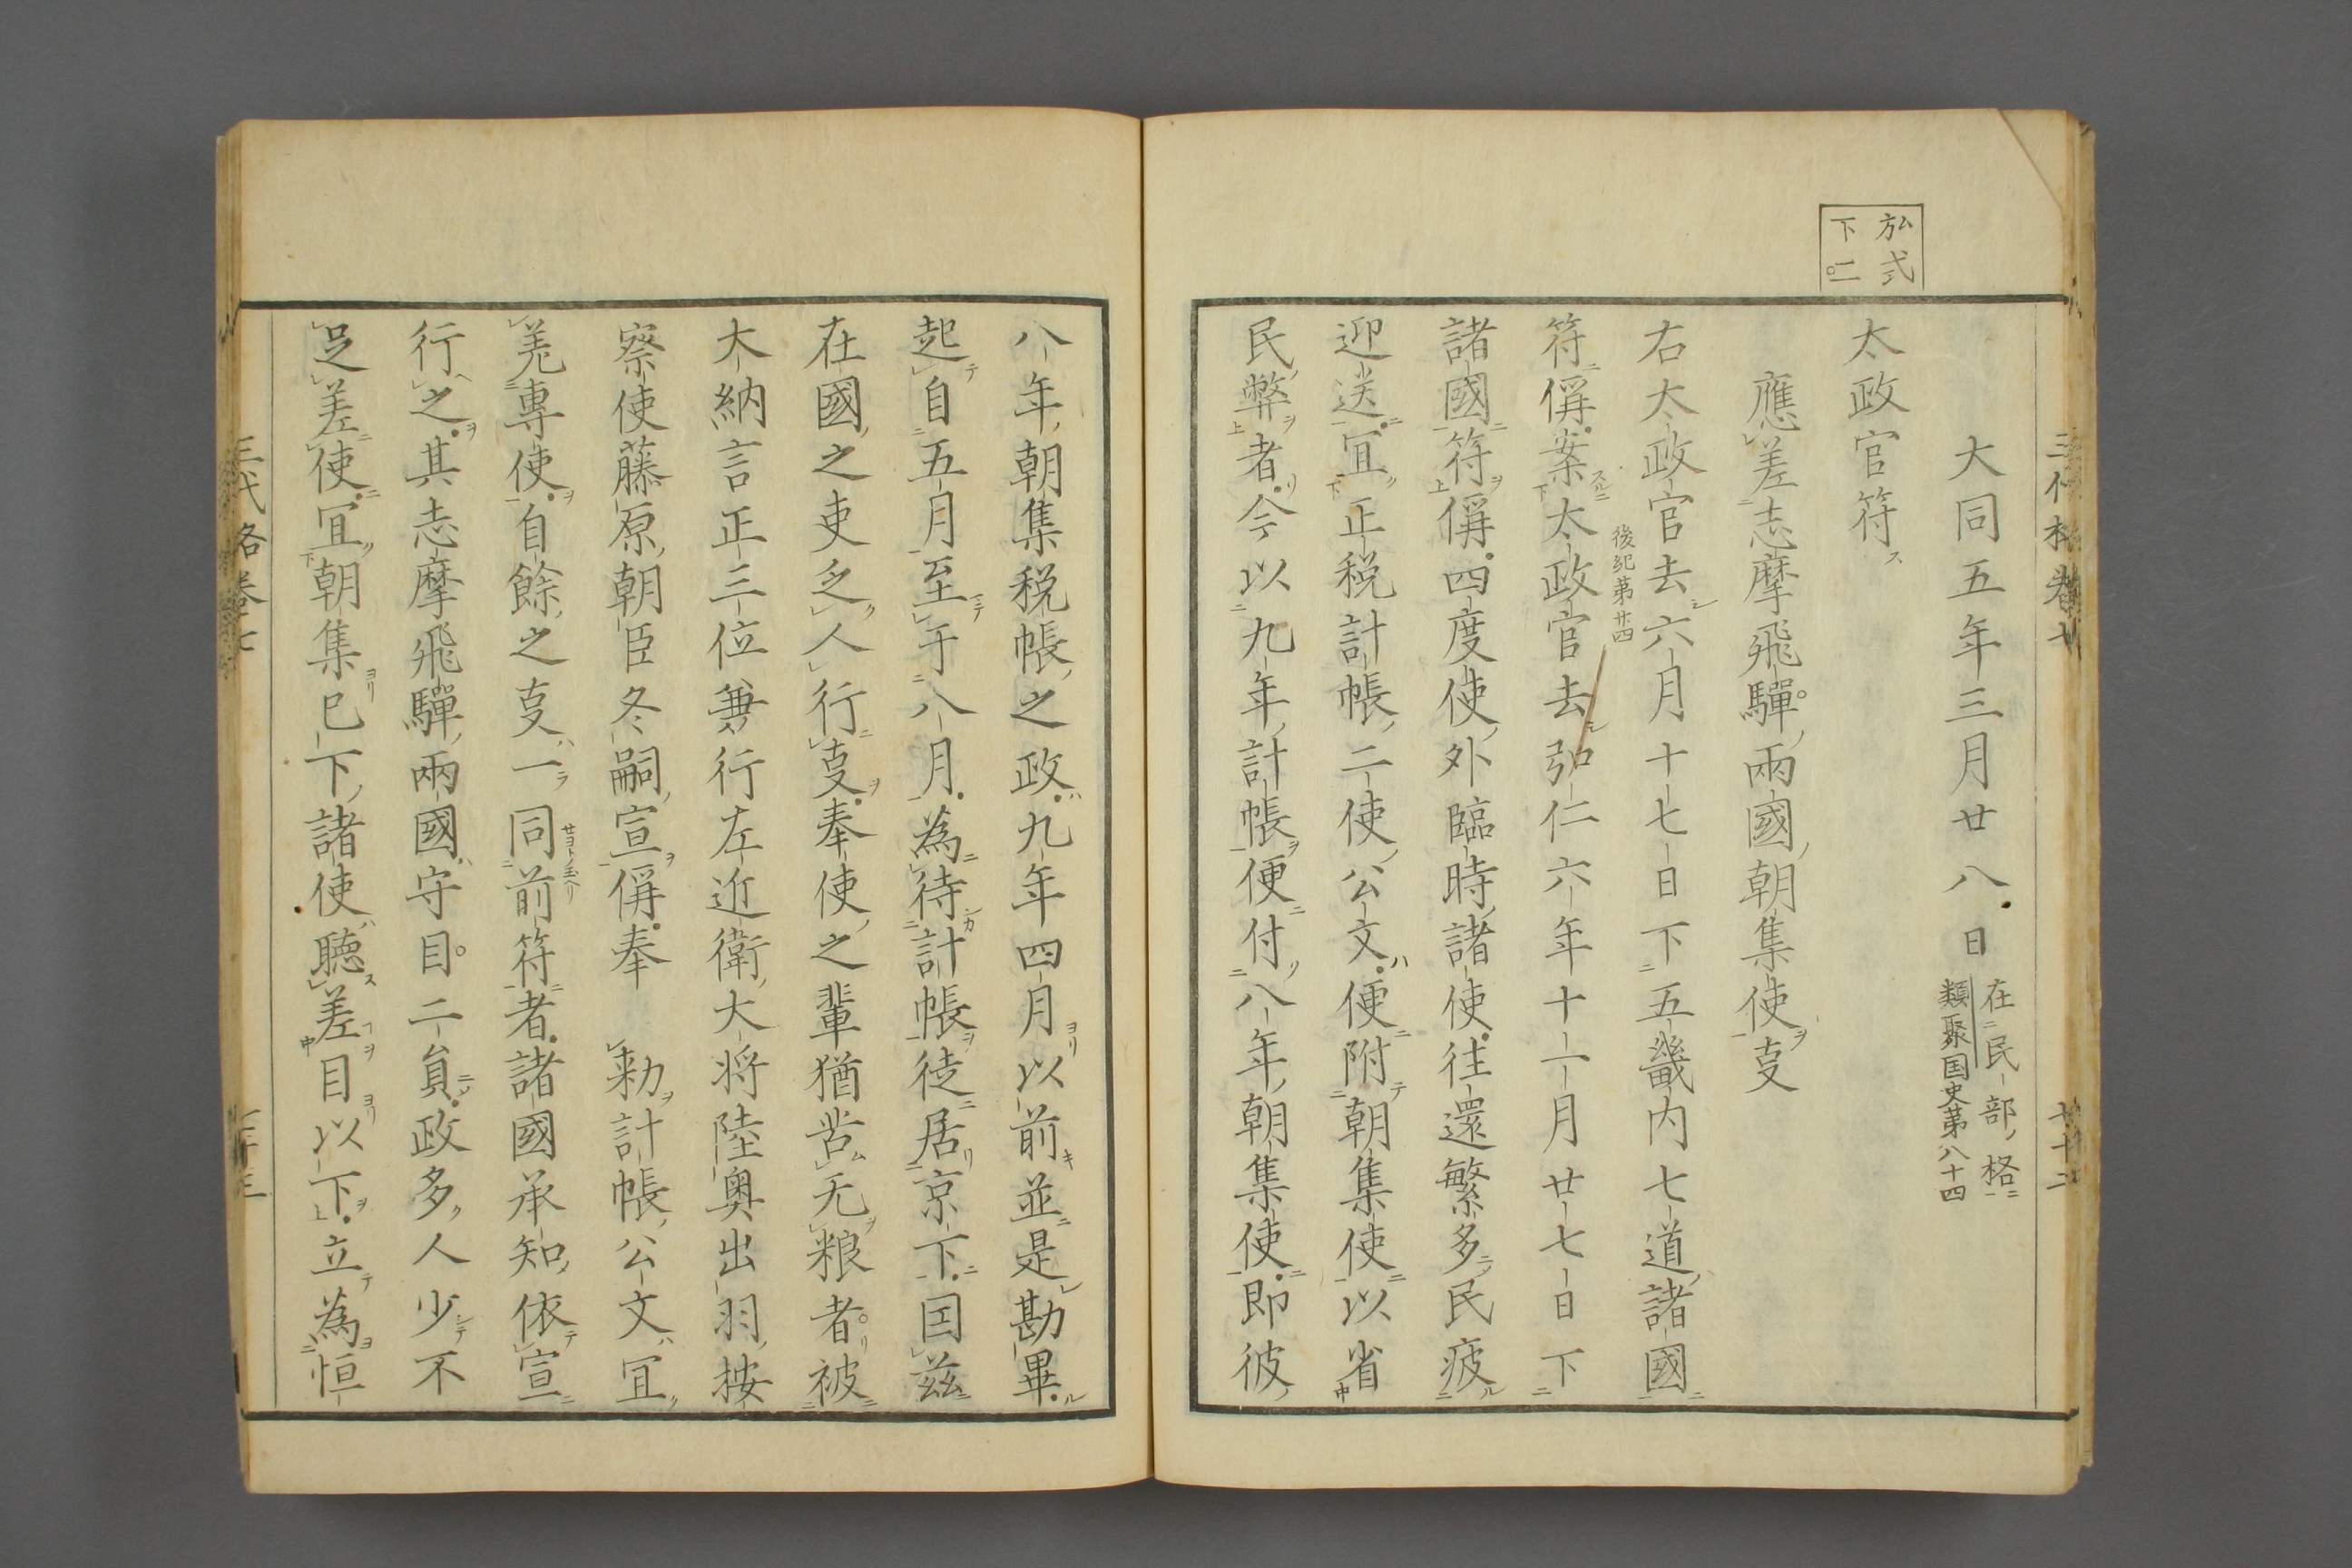 弘式
下二
三代格卷七
大同五年三月廿八日
在民部格
類聚国史第八十四
太政官符
應差志摩飛驒兩國朝集使㕝
右太政官去六月十七日下五畿内七道諸國
後紀第廿四
符偁案太政官去弘仁六年十一月廿七日下
諸國符偁四度使外臨時諸使往還繁多民疲
迎送冝正税計帳二使公文便附朝集使以省
民弊者今以九年計帳便付八年朝集使即彼
八年朝集税帳之政九年四月以前並是勘畢
起自五月至于八月為待計帳徒居京下因茲
在國之吏乏人行㕝奉使之輩猶苦无粮者被
大納言正三位兼行左近衛大将陸奥出羽按
察使藤原朝臣冬嗣宣偁奉　勑計帳公文冝
差專使自餘之㕝一同前符者諸國承知依宣
行之其志摩飛驒兩國守目二負政多人少不
足差使冝朝集已下諸使聽差目以下立為恒
三代格卷七